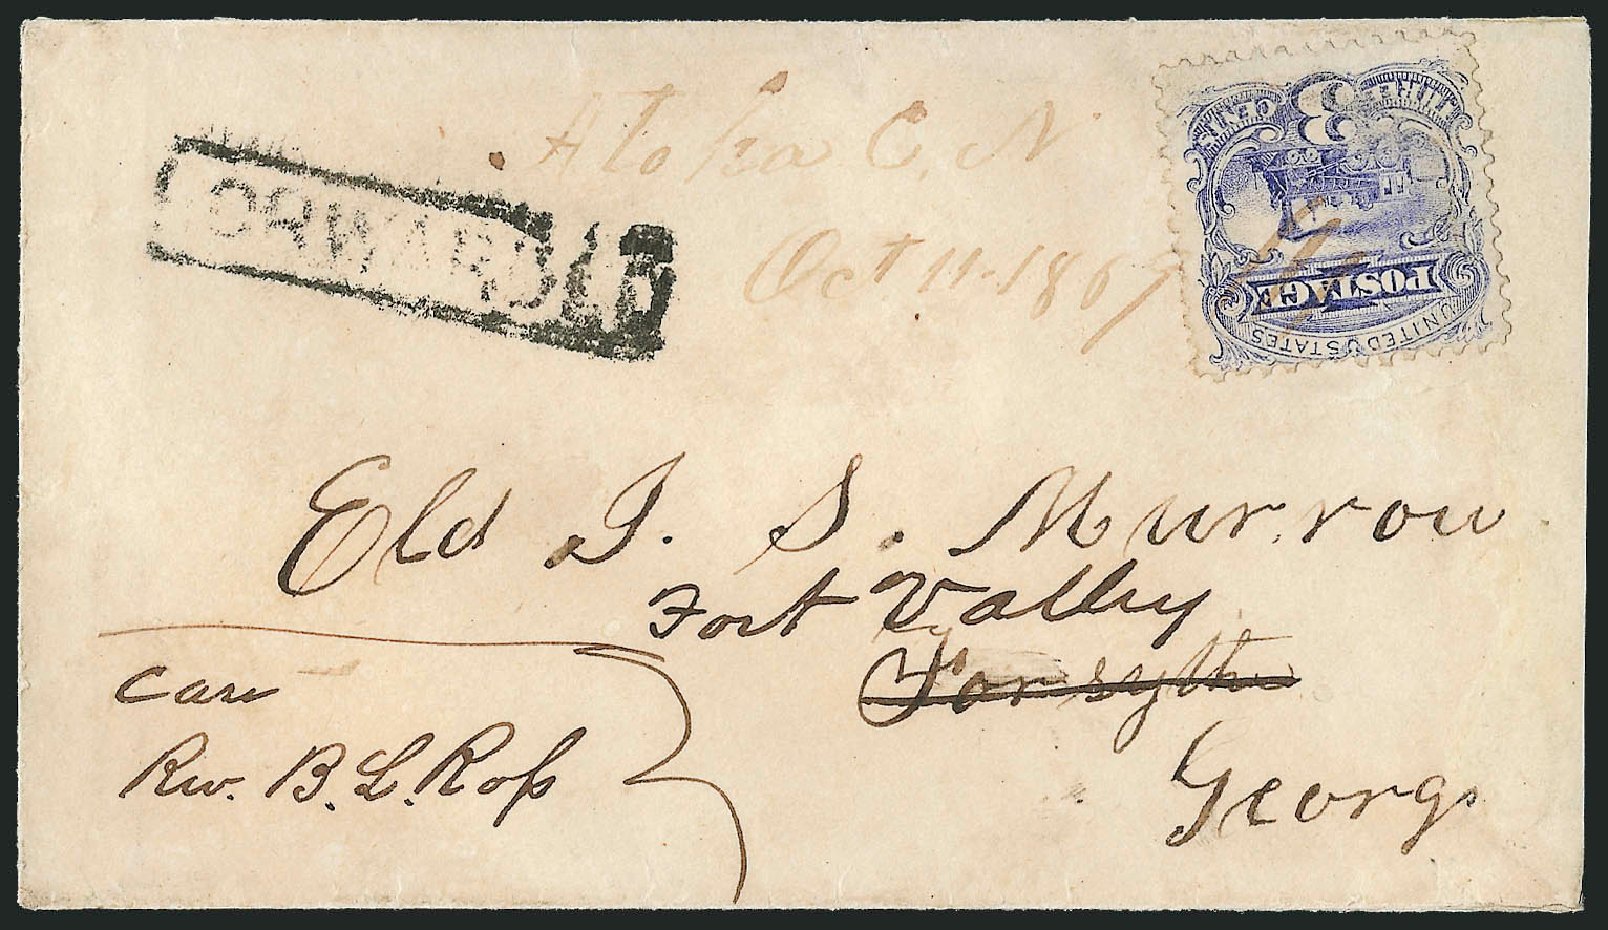 Atoka C. N
Oct 11-1869
FORWARDED
THREE 3 CENTS
POSTAGE
UNITED STATES
Eld J. S. Murrow
Fort Valley
Forsythe
Georg
Care
Rev. B. L. Ross